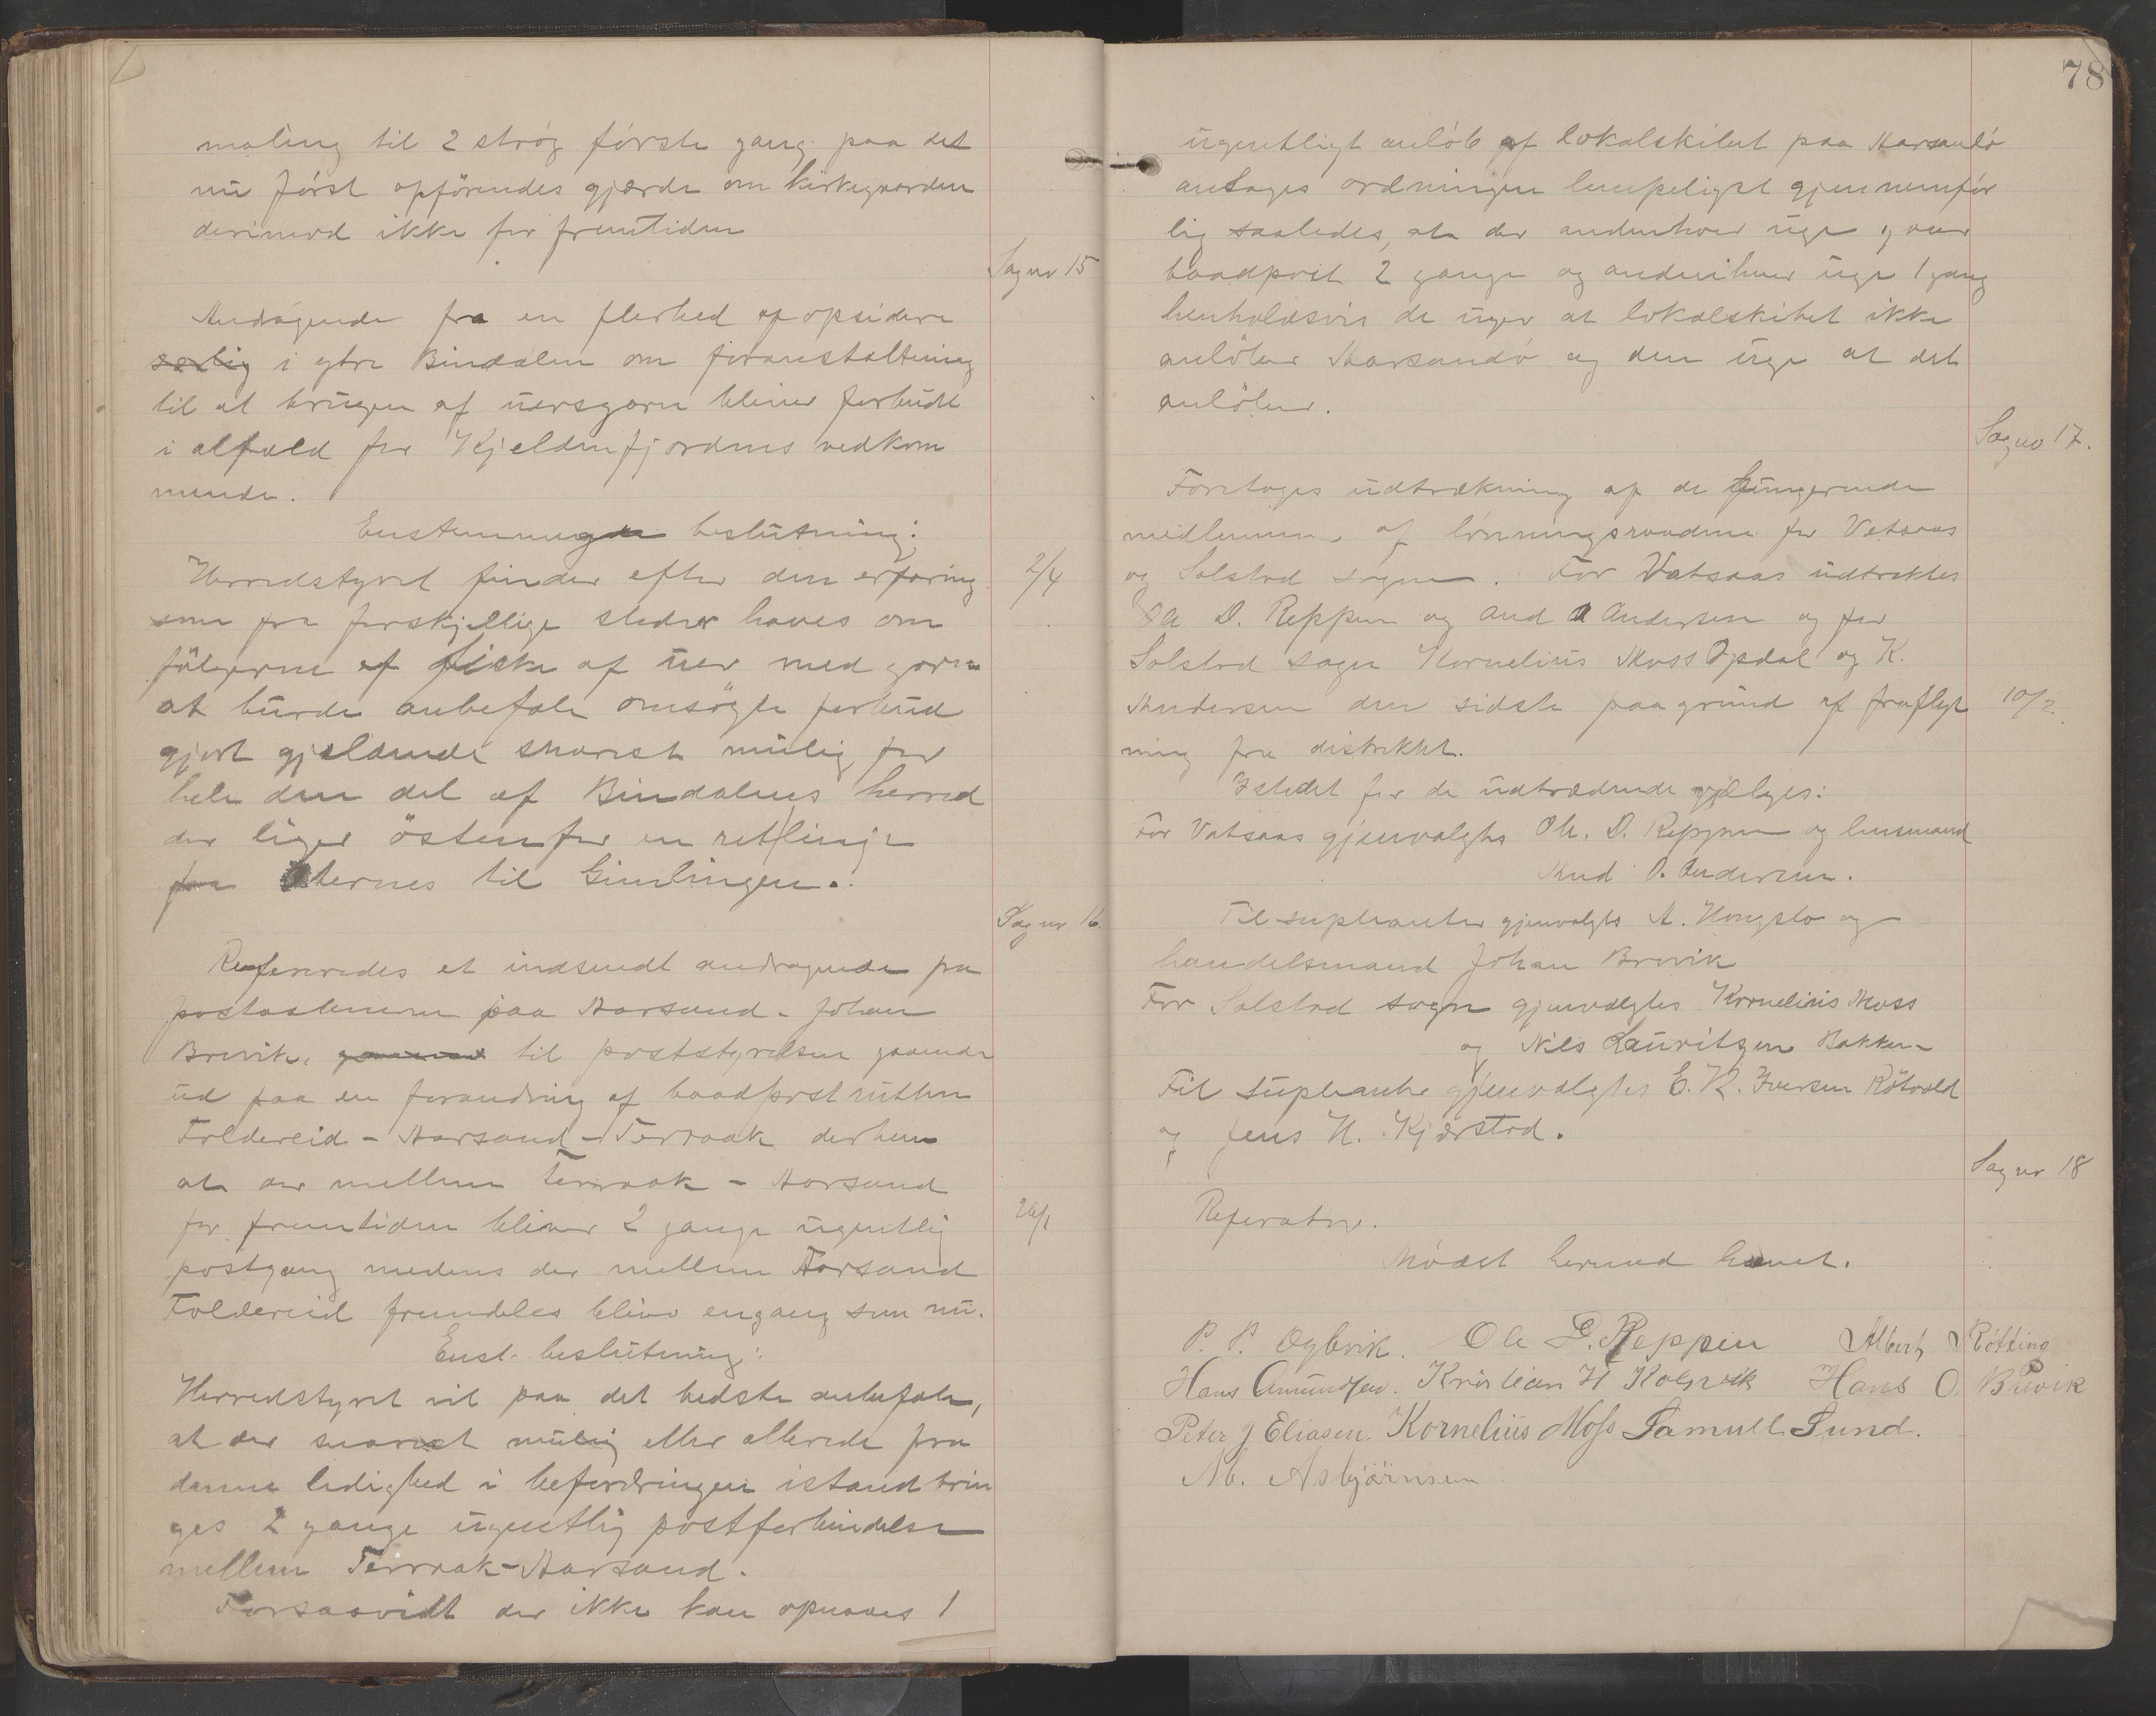 maling til 2 strøg første gang paa det
nu først opførendes gjærde om kirkegaarden
derimod ikke for fremtiden
Sag nr 15
Andragende fra en flerhed af opsidere
særlig i ytre Bindalen om foranstaltning
til at brugen af uersgarn bliver forbudt
i alfald for Kjeldenfjordens vedkom
mende.
Enstemmige beslutning:
Herredstyret finder efter den erfaring
2/4
som fra forskjellige steder haves om
følgerne af fiske af uer med garn
at burde anbefale omsøgte forbud
gjort gjældende snarest mulig for
hele den del af Bindalens herred
der liger östenfor en ret linje
fra Oternes til Gimlingen.
Sag nr 16.
Refereredes et indsendt andragende fra
postaabneren paa Aarsand - Johan
Brevik, til poststyrelsen gaaende
ud paa en forandring af baadpostruthen
Foldereid - Aarsand - Terraak derhen
at der mellem Terraak - Aarsand
for fremtiden bliver 2 gange ugentlig
26/1
postgang medens der mellem Aarsand
Foldereid fremdeles blive engang som nu.
Enst. beslutning:
Herredstyret vil paa det bedste anbefale,
at der snarest mulig eller allerede fra
denne ledighed i befordringen istandbrin
ges 2 gange ugentlig postforbindelse
mellem Terraak - Aarsand.
Forsaavidt der ikke kan opnaaes 1
78
ugentligt anløb af lokalskibet paa Aarsandø
antages ordningen lempeligst gjennemfør
lig saaledes, at der andenhver uge gaar
baadpost 2 gange og andenhver uge 1 gang
henholdsvis de uger at lokalskibet ikke
anlöber Aarsandø og den uge at det
anlöber.
Sag no 17.
Foretages udtrækning af de fungerende
medlemmer af ligningsraadene for Vatsaas
og Solstad sogne. For Vatsaas udtrektes
Ole D. Reppen og And O Andersen og for
Solstad sogn Kornelius Moss Opdal og K.
Andersen den sidste paagrund af fraflyt
10/2.
ning fra distriktet.
Istedet for de udtrædende vælges:
For Vatsaas gjenvalgtes Ole. D. Reppen og husmand
And O. Andersen.
Til suplianter gjenvalgts A. Hongslo og
handelsmand Johan Brevik
For Solstad sogn gjenvalgtes Kornelius Moss
og Nils Lauritzen Bakken
Til suplianter gjenvalgtes E. K. Iversen Røtvold
og Jens N. Kjærstad.
Sag nr 18
Referater.
Mødet hermed hævet.
P. P. Ogbvik. Ole D. Reppen Albert Røtting
Hans Amundsen. Kristian H Kolsvik Hans O. Brevik
Peter J Eliasen. Kornelius Moss Samuel Sund.
M. Asbjörnsen